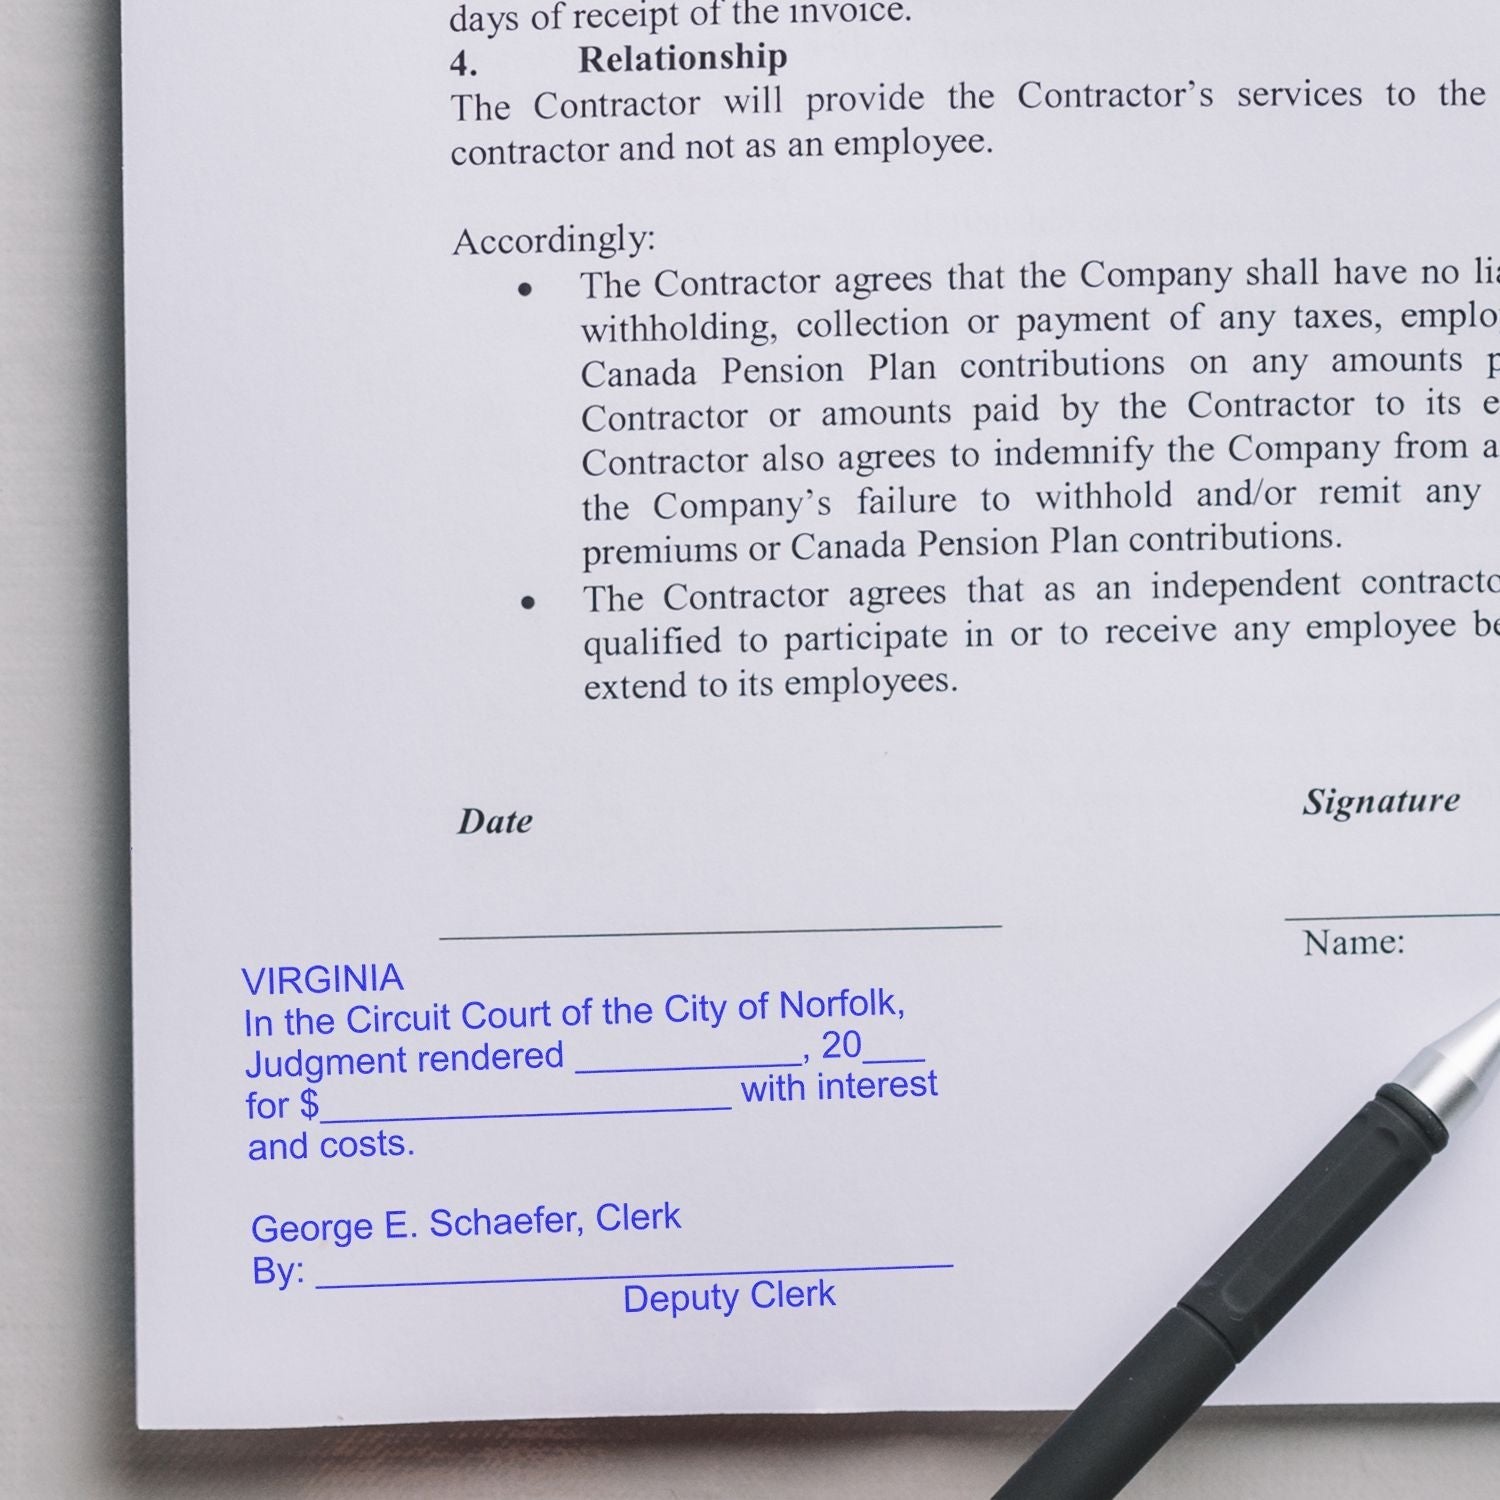 days of receipt of the invoice.
4. Relationship
The Contractor will provide the Contractor's services to the
contractor and not as an employee.
Accordingly:
• The Contractor agrees that the Company shall have no
withholding, collection or payment of any taxes,
Canada Pension Plan contributions on any amounts
Contractor or amounts paid by the Contractor to its
Contractor also agrees to indemnify the Company from
the Company's failure to withhold and/or remit any
premiums or Canada Pension Plan contributions.
• The Contractor agrees that as an independent
qualified to participate in or to receive any employee
extend to its employees.
Date Signature
Name:
VIRGINIA
In the Circuit Court of the City of Norfolk,
Judgment rendered ___________, 20___
for $____________________ with interest
and costs.
George E. Schaefer, Clerk
By: _______________________________
Deputy Clerk